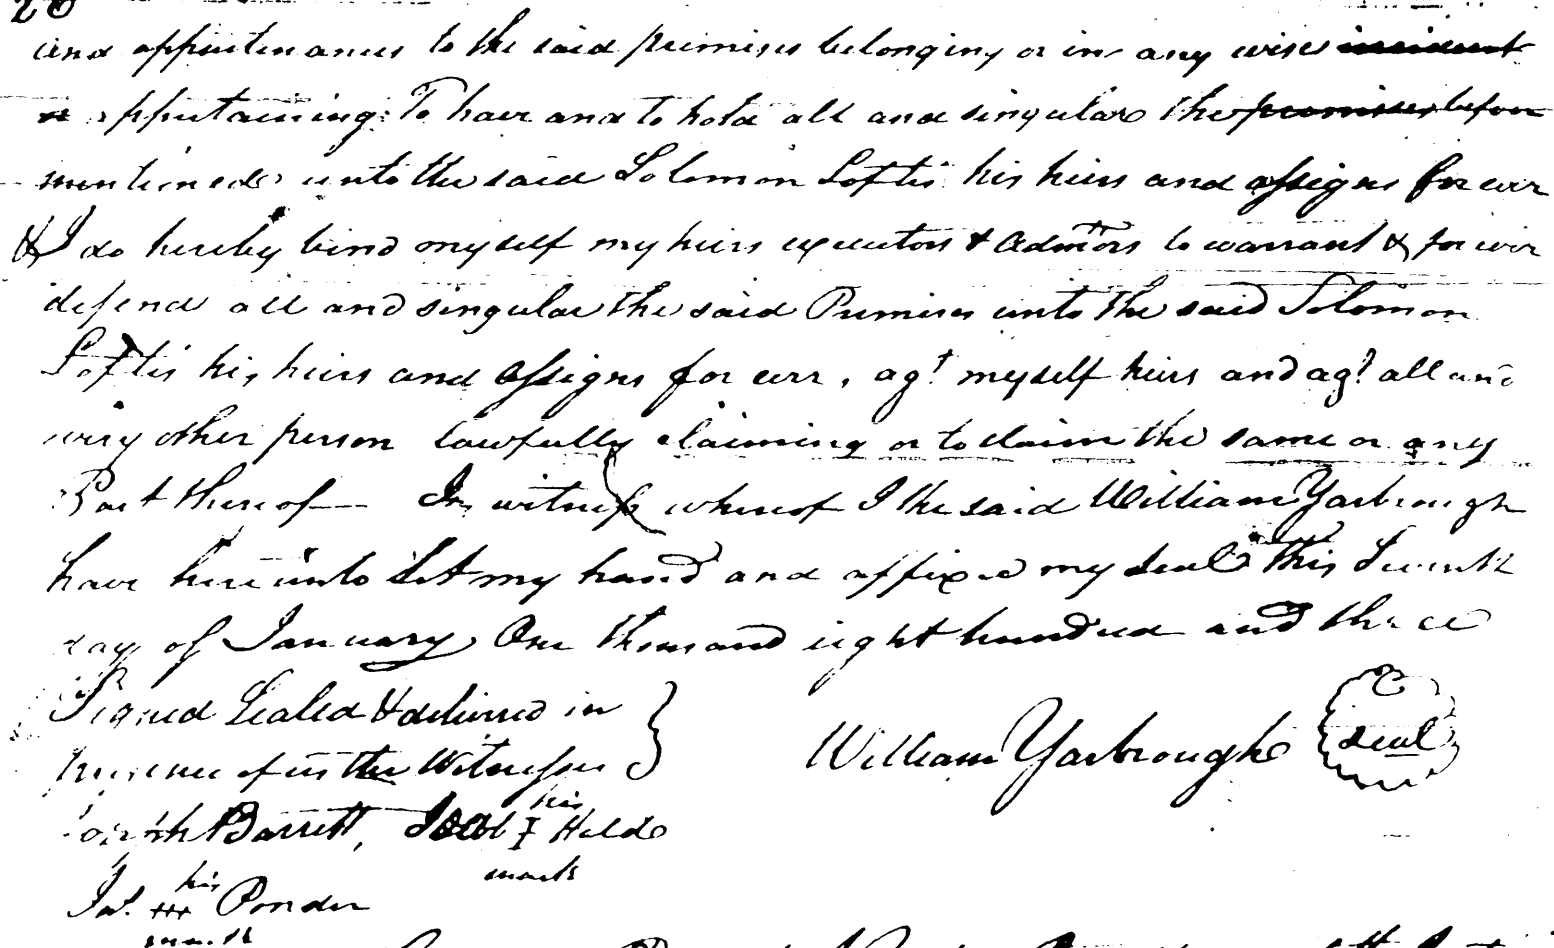 and appurtenances to the said premises belonging or in any wise incident
or appertaining: To have and to hold all and singular the premises before
mentioned unto the said Solomon Loftis his heirs and assigns for ever
& I do hereby bind myself my heirs executors & Admtors to warrant & for ever
defend all and singular the said Premises unto the said Solomon
Loftis his heirs and assigns for ever, agt myself heirs and agt all and
every other person lawfully claiming or to claim the same or any
Part thereof— In witness whereof I the said William Yarbrough
have here unto Set my hand and affixed my Seal this
day of January One thousand eight hundred and three
Signed Sealed & delivered in
presence of us the Witnesses
William Yarbrough seal
Barrett, his I Held
mark
his
Ja. +++ Ponder
mark